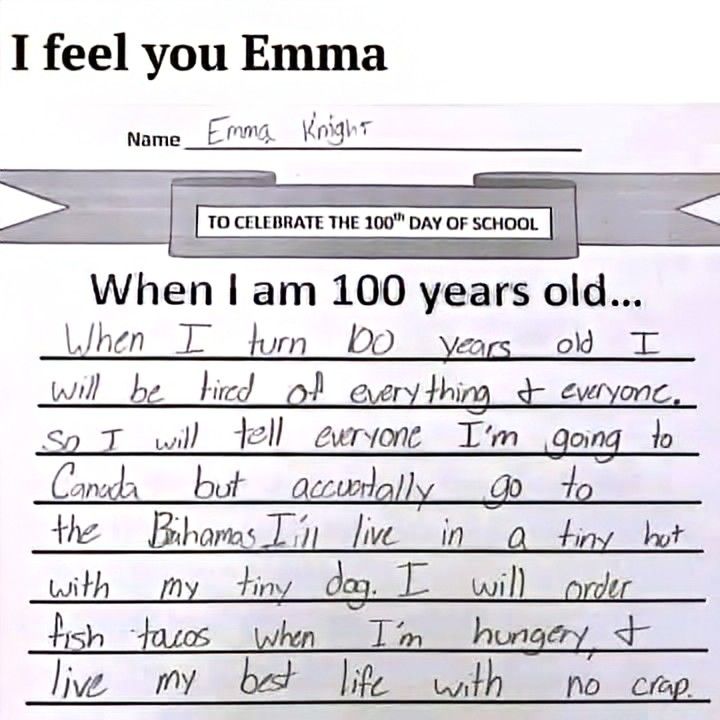 I feel you Emma
Name Emma Knight
TO CELEBRATE THE 100th DAY OF SCHOOL
When I am 100 years old...
When I turn 100 years old I
will be tired of everything & everyone.
so I will tell everyone I'm going to
Canada but accuortally go to
the Bahamas I'll live in a tiny hot
with my tiny dog. I will order
fish tacos when I'm hungery, &
live my best life with no crap.